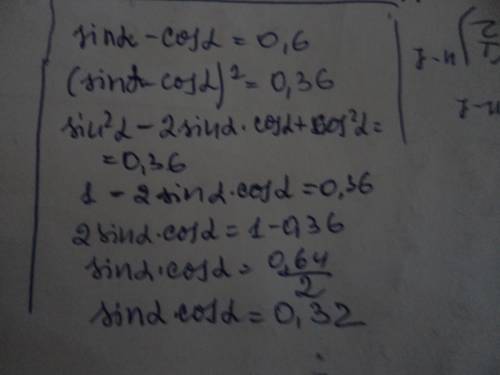 sinα - cosα = 0,6
(sinα - cosα)² = 0,36
sin²α - 2sinα·cosα + cos²α =
= 0,36
1 - 2sinα·cosα = 0,36
2sinα·cosα = 1 - 0,36
sinα·cosα = 0,64/2
sinα·cosα = 0,32